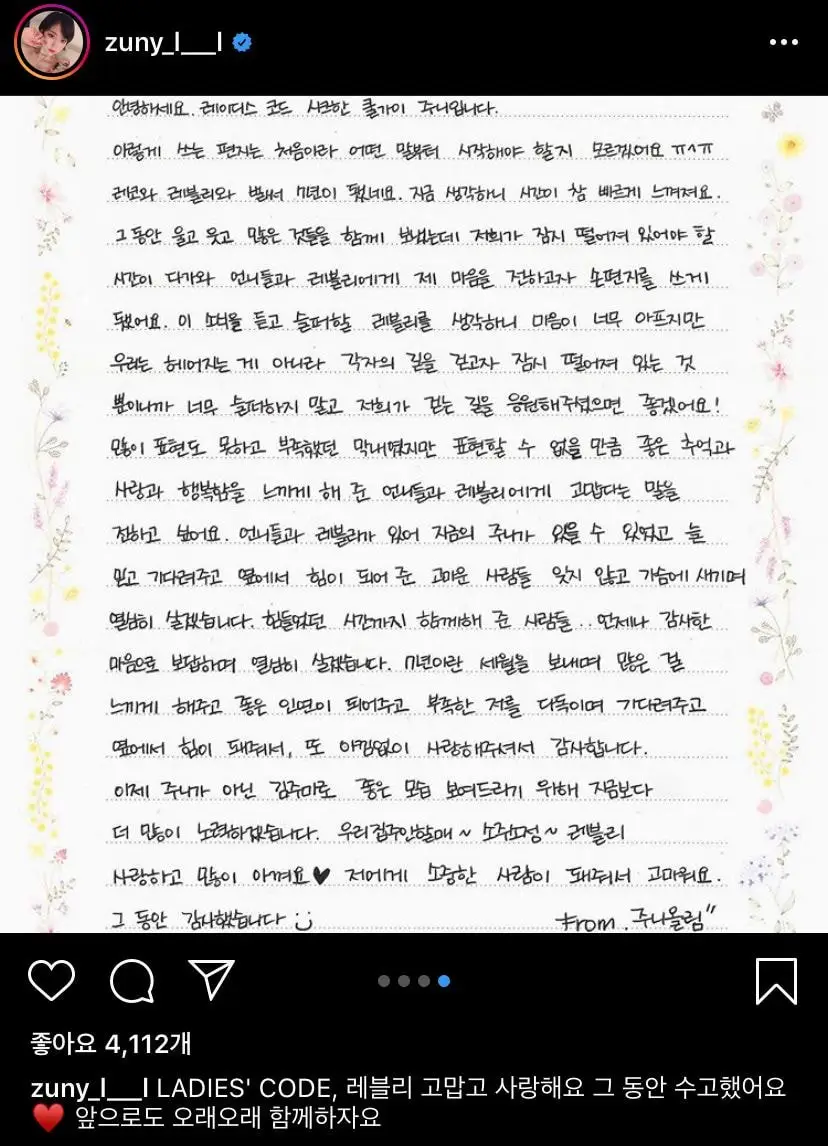 zuny_l___l
안녕하세요. 레이디스 코드 시크한 큘가이 주니입니다.
이렇게 쓰는 편지는 처음이라 어떤 말부터 시작해야 할지 모르겠어요 ㅠ^ㅠ
레코와 레블리와 벌써 7년이 됐네요. 지금 생각하니 시간이 참 빠르게 느껴져요.
그동안 울고 웃고 많은 것들을 함께 보냈는데 저희가 잠시 떨어져 있어야 할
시간이 다가와 언니들과 레블리에게 제 마음을 전하고자 손편지를 쓰게
됐어요. 이 소식을 듣고 슬퍼할 레블리를 생각하니 마음이 너무 아프지만
우리는 헤어지는 게 아니라 각자의 길을 걷고자 잠시 떨어져 있는 것
뿐이니까 너무 슬퍼하지 말고 저희가 걷는 길을 응원해주셨으면 좋겠어요!
많이 표현도 못하고 부족했던 막내였지만 표현할 수 없을 만큼 좋은 추억과
사랑과 행복함을 느끼게 해 준 언니들과 레블리에게 고맙다는 말을
전하고 싶어요. 언니들과 레블리가 있어 지금의 주니가 있을 수 있었고 늘
믿고 기다려주고 옆에서 힘이 되어 준 고마운 사람들 잊지 않고 가슴에 새기며
열심히 살겠습니다. 힘들었던 시간까지 함께해 준 사람들.. 언제나 감사한
마음으로 보답하며 열심히 살겠습니다. 7년이란 세월을 보내며 많은 걸
느끼게 해주고 좋은 인연이 되어주고 부족한 저를 다독이며 기다려주고
옆에서 힘이 돼줘서, 또 아낌없이 사랑해주셔서 감사합니다.
이제 주니가 아닌 김주미로 좋은 모습 보여드리기 위해 지금보다
더 많이 노력하겠습니다. 우리집주인할매~ 소주소정~ 레블리
사랑하고 많이 아껴요♥ 저에게 소중한 사람이 돼줘서 고마워요.
그 동안 감사했습니다 :)
from. 주니올림"
좋아요 4,112개
zuny_l___l LADIES' CODE, 레블리 고맙고 사랑해요 그 동안 수고했어요
❤️ 앞으로도 오래오래 함께하자요